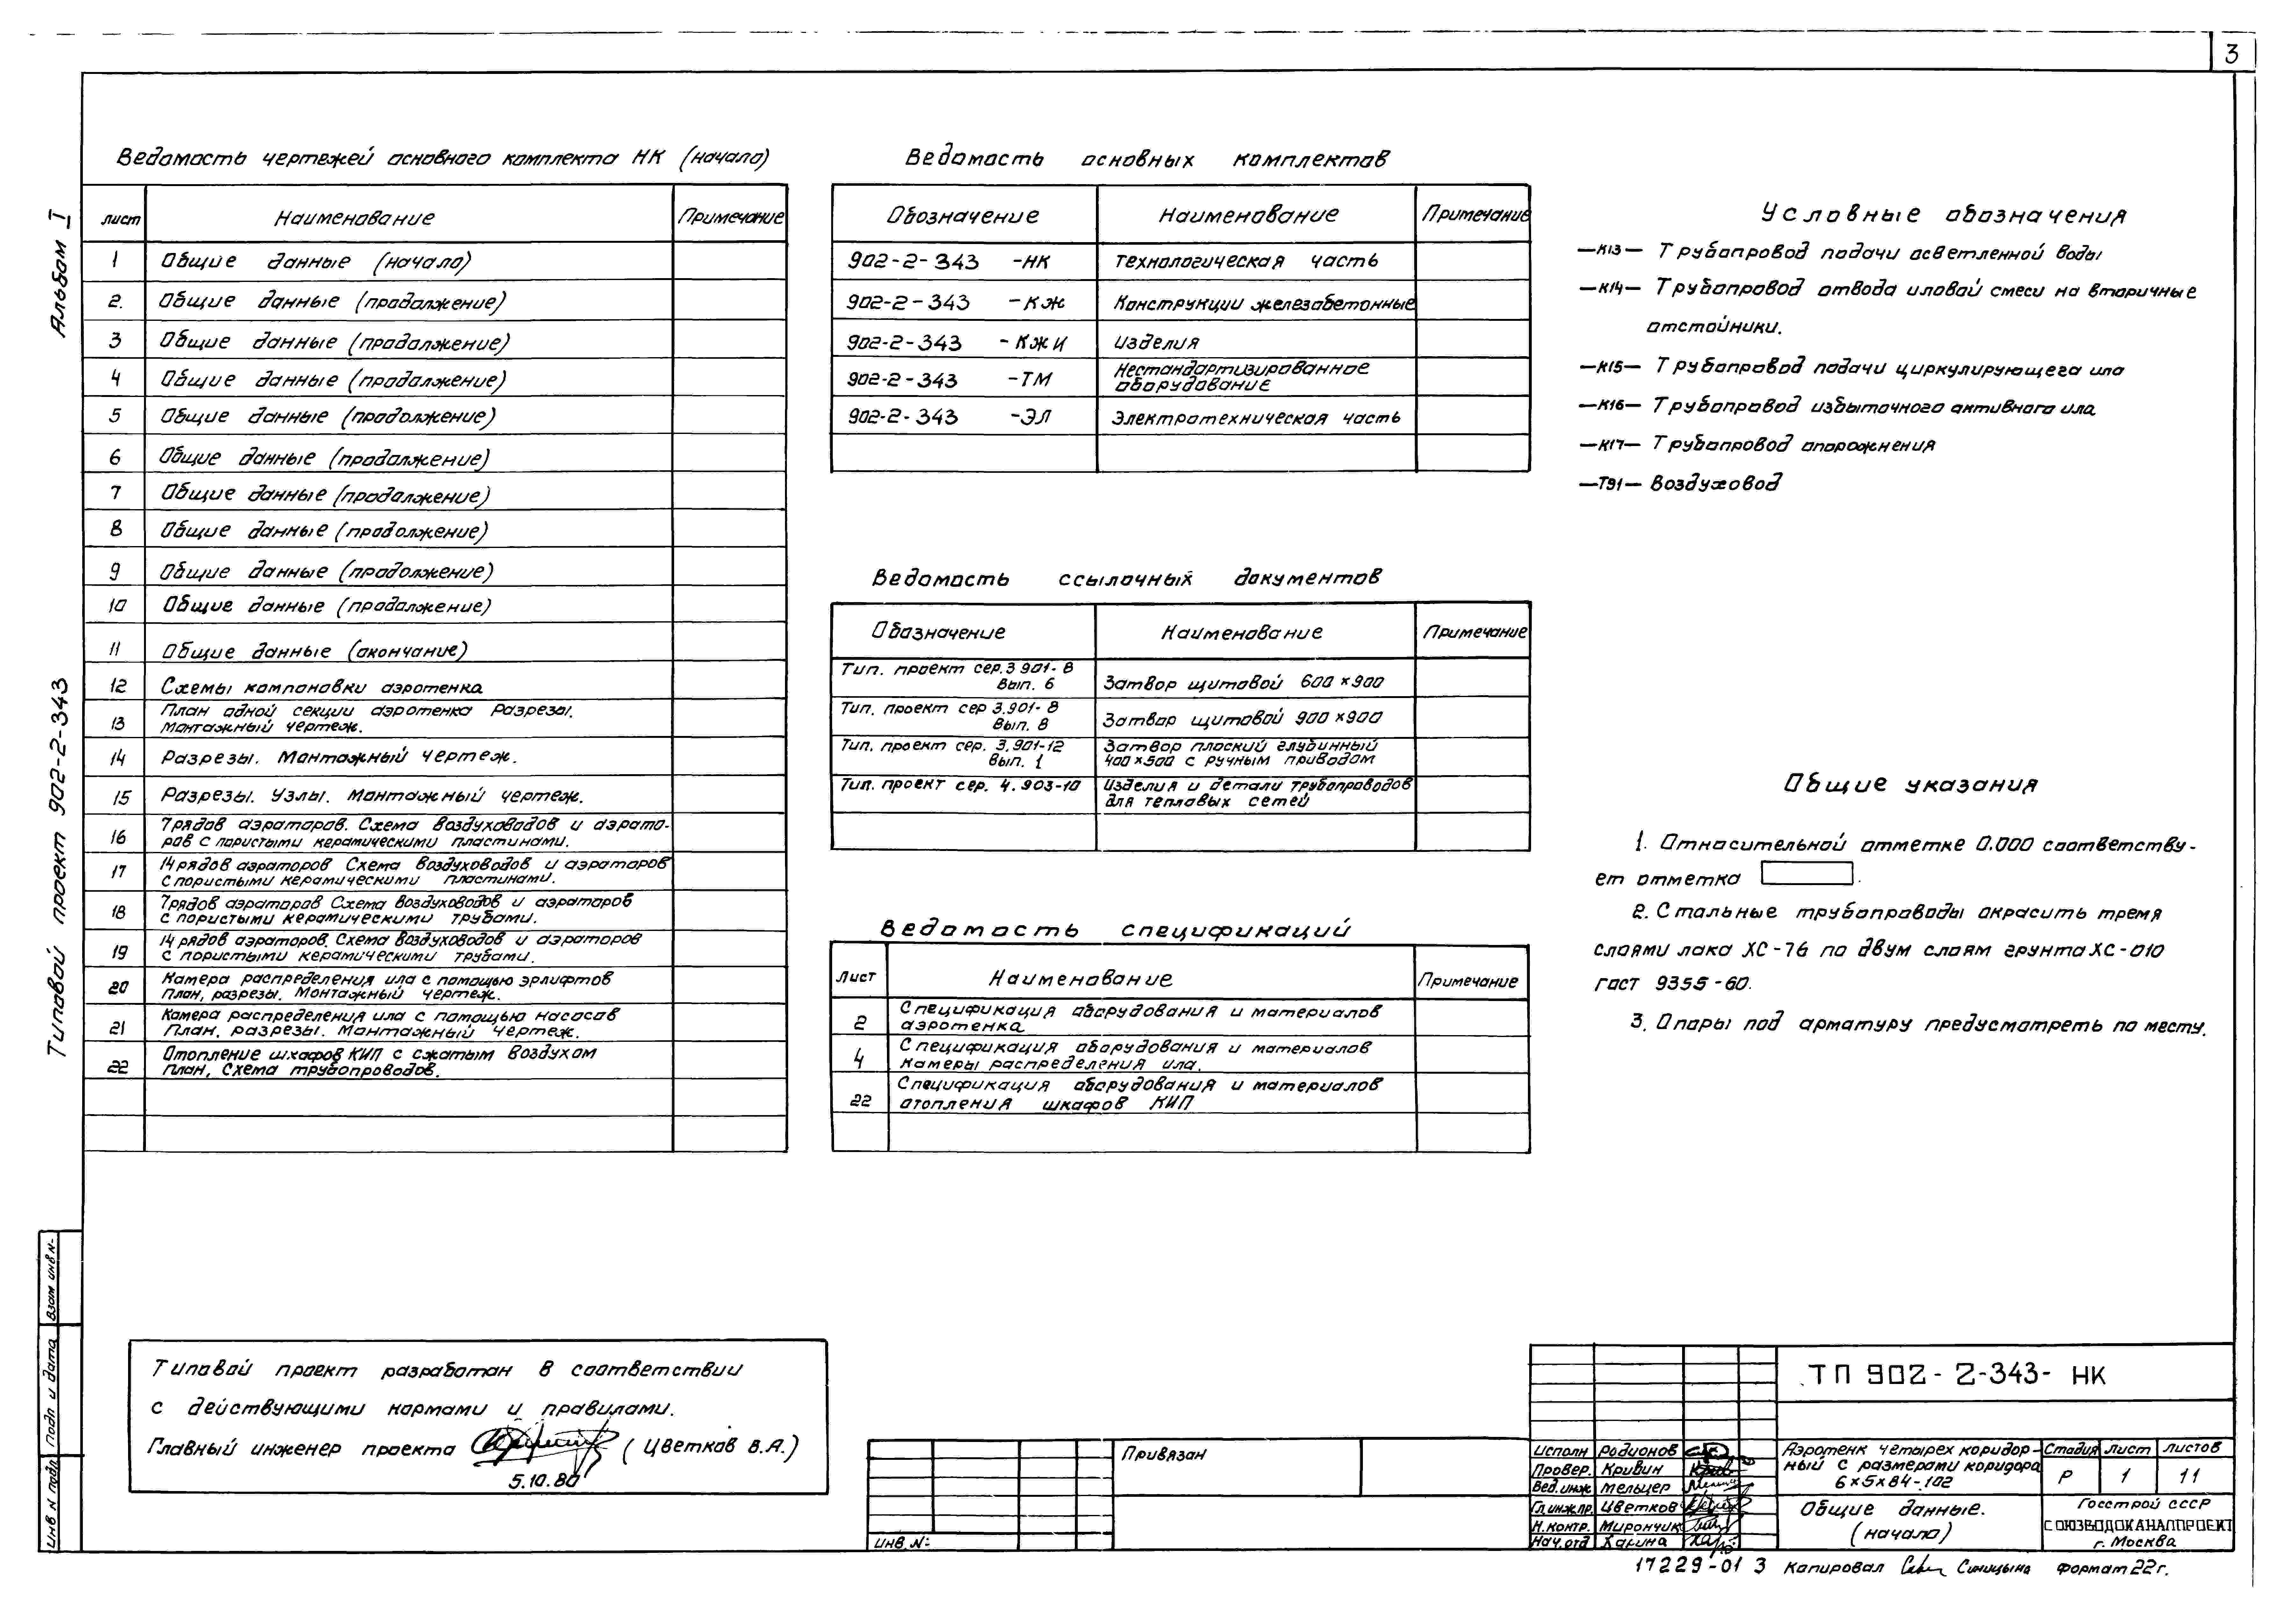 3
Альбом I
Типовой проект 902-2-343
Ведомость чертежей основного комплекта НК (начало)
лист Наименование Примечание
1 Общие данные (начало)
2. Общие данные (продолжение)
3 Общие данные (продолжение)
4 Общие данные (продолжение)
5 Общие данные (продолжение)
6 Общие данные (продолжение)
7 Общие данные (продолжение)
8 Общие данные (продолжение)
9 Общие данные (продолжение)
10 Общие данные (продолжение)
11 Общие данные (окончание)
12 Схемы компоновки аэротенка
План одной секции аэротенка Разрезы.
13 Монтажный чертеж.
14 Разрезы. Монтажный чертеж.
15 Разрезы. Узлы. Монтажный чертеж.
7рядов аэраторов. Схема воздуховодов и аэрато-
16 ров с пористыми керамическими пластинами.
14 рядов аэраторов Схема воздуховодов и аэраторов
17 с пористыми керамическими пластинами.
7рядов аэраторов Схема воздуховодов и аэраторов
18 с пористыми керамическими трубами.
14 рядов аэраторов. Схема воздуховодов и аэраторов
19 с пористыми керамическими трубами.
Камера распределения ила с помощью эрлифтов
20 План, разрезы. Монтажный чертеж.
Камера распределения ила с помощью насосов
21 План, разрезы. Монтажный чертеж.
Отопление шкафов КИП с сжатым воздухом
22 План, Схема трубопроводов.
Ведомость основных комплектов
Обозначение Наименование Примечание
902-2-343 -НК Технологическая часть
902-2-343 -КЖ Конструкции железобетонные
902-2-343 -КЖИ Изделия
902-2-343 -ТМ Нестандартизированное
оборудование
902-2-343 -ЭЛ Электротехническая часть
Ведомость ссылочных документов
Обозначение Наименование Примечание
Тип. проект сер.3 901-8
Вып. 6 Затвор щитовой 600×900
Тип. проект сер 3.901-8
Вып. 8 Затвор щитовой 900×900
Тип. проект сер. 3.901-12 Затвор плоский глубинный
Вып. 1 400×500 с ручным приводом
Тип. проект сер. 4.903-10 Изделия и детали трубопроводов
для тепловых сетей
Ведомость спецификаций
Лист Наименование Примечание
Спецификация оборудования и материалов
2 аэротенка
Спецификация оборудования и материалов
4 камеры распределения ила.
Спецификация оборудования и материалов
22 отопления шкафов КИП
Условные обозначения
—К13— Трубопровод подачи осветленной воды
—К14— Трубопровод отвода иловой смеси на вторичные
отстойники.
—К15— Трубопровод подачи циркулирующего ила
—К16— Трубопровод избыточного активного ила
—К17— Трубопровод опорожнения
—Т91— Воздуховод
Общие указания
1. Относительной отметке 0.000 соответству-
ет отметка .
2. Стальные трубопроводы окрасить тремя
слоями лака ХС-76 по двум слоям грунта ХС-010
гост 9355-60.
3. Опоры под арматуру предусмотреть по месту.
Типовой проект разработан в соответствии
с действующими нормами и правилами.
Главный инженер проекта (Цветков В.А.)
5.10.80
Инв N подл Подп и дата Взам инв N-
Привязан
инв. N:
ТП 902-2-343- НК
Исполн Родионов
Провер. Кривин
Вед.инж Мельцер
Гл.инж.пр. Цветков
Н.контр. Мирончик
Нач.отд Ханина
Аэротенк четырех коридор-
ный с размерами коридора
6×5×84-102
Стадия лист листов
Р 1 11
Общие данные.
(начало)
Госстрой СССР
СОЮЗВОДОКАНАЛПРОЕКТ
г. Москва
17229-01 3 Копировал Синицына формат 22г.